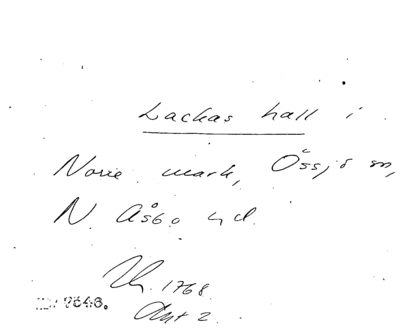 Lackas hall i
Norre mark, Össjö sn,
N. Åsbo hd.
1768.
7648.
2.